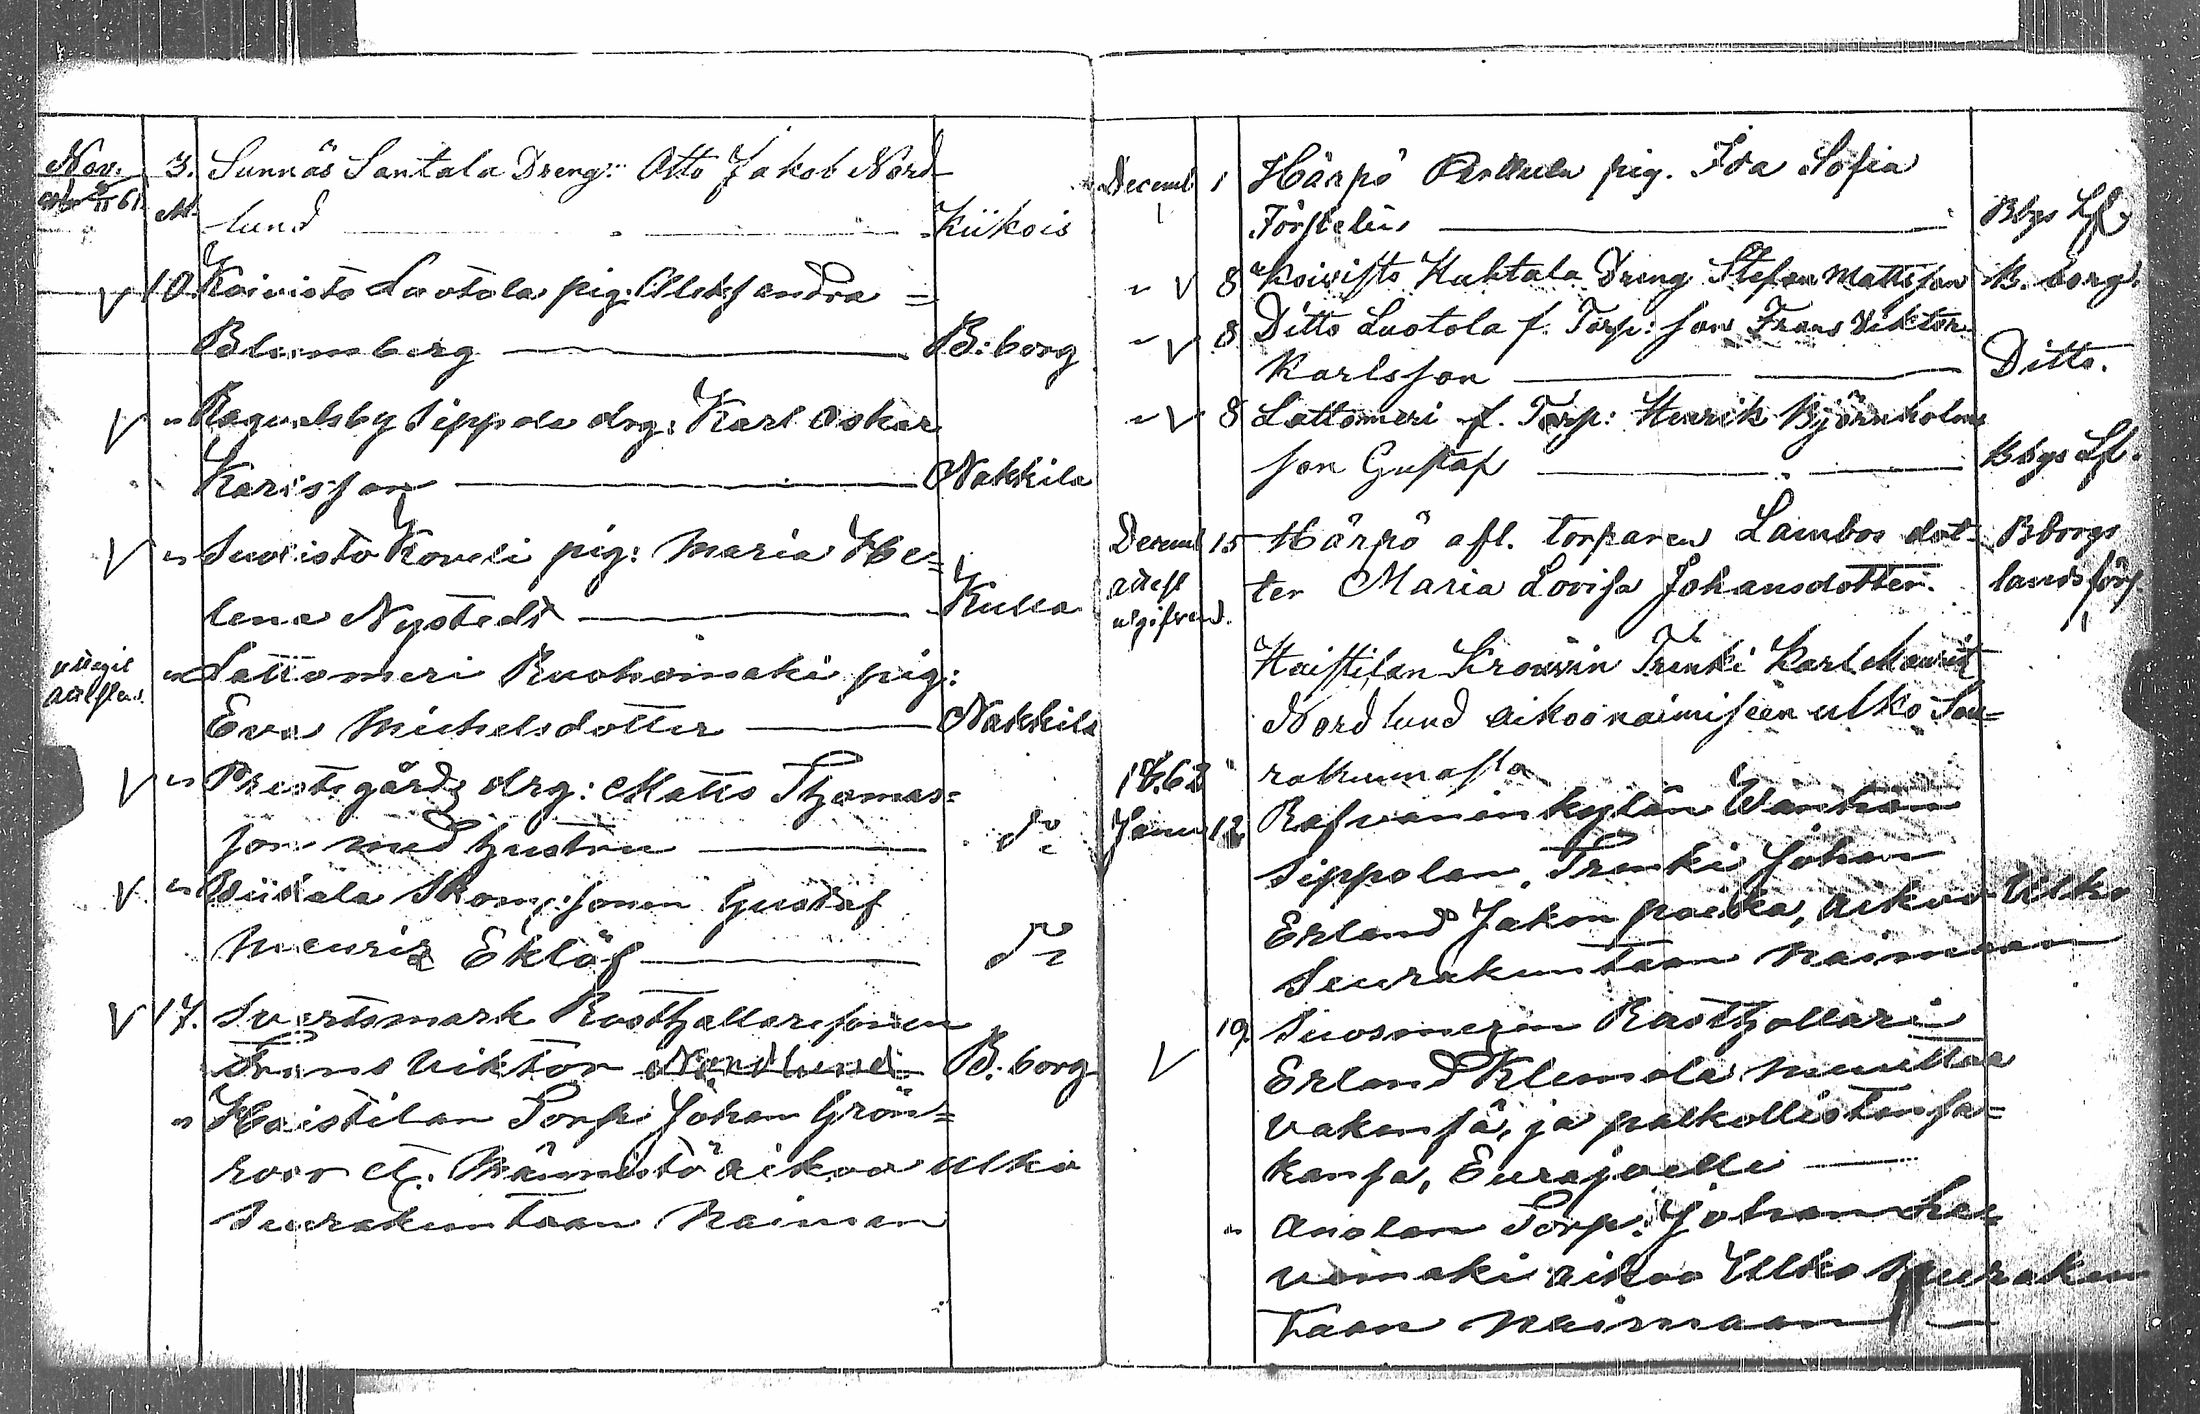 Nov. 3. Sunnäs Santala Dreng: Otto Jakob Nord-
lund Kiikois
10. Koivisto Luotola pig: Aleksandra =
Blomberg B:borg
" Ragvalsby Sippola drg: Karl Oskar
Karlsson Nakkila
" Suvisto Koveli pig: Maria He=
lena Nystedt Kulla
" Lattomeri Ruohomäki pig:
Eva Michelsdotter Nakkila
" Prestegårds drg: Matts Thomas=
son med hustru do
" Skom: sonen Gustaf
Mauriz Eklöf do
17. Svartsmark Rusthållaresonen
Frans Viktor Nordlund B. borg
" Haistilan Torp: Johan Grön=
roos Männistö aikoo ulko
Seurakuntaan Naiman
Decemb 1 Härpö pig. Ida Sofia
Förstelin Bbgs Lf.
" 8 Koivisto Kuhtala Dreng Stefan Mattsson B. borg.
" 8 Ditto Luotola f. Torp: son Frans Viktor
Karlsson Ditto.
" 8 Lattomeri f. Torp: Henrik Björnholms
son Gustaf Bbgs Lf.
Decemb 15 Härpö afl. torparen Lambos dot- Bborgs
attest ter Maria Lovisa Johansdotter. landsförs.
utgifven d.
Haistilan Krouvin Trenki Karl Maurits
Nordlund aikoo naimiseen ulko Seu=
1862 rakunnasta
Janu 12 Rafvanin kylän Wanhan
Sippolan Trenki Johan
Erland Jakon poika, aikoo Ulko
Seurakuntaan Naimaan
19. Suosmeren Rusthollari
Erland Klemola muuttaa
väkensä, ja palkollistensa=
kansa, Eurajoelle
" Anolan Torp: Johan
aikoo Ulko Seurakun
taan Naimaan